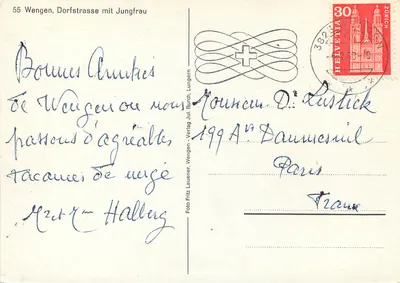 55 Wengen, Dorfstrasse mit Jungfrau
Bonnes Amitiés
de Wengen ou nous
passons d'agréables
vacances de neige
Mr et Mme Halberg
Foto Fritz Lauener, Wengen - Verlag Jul.
Lungern
HELVETIA
30
ZÜRICH
3823
Monsieur Dr
199 Av Daumesnil
Paris
France